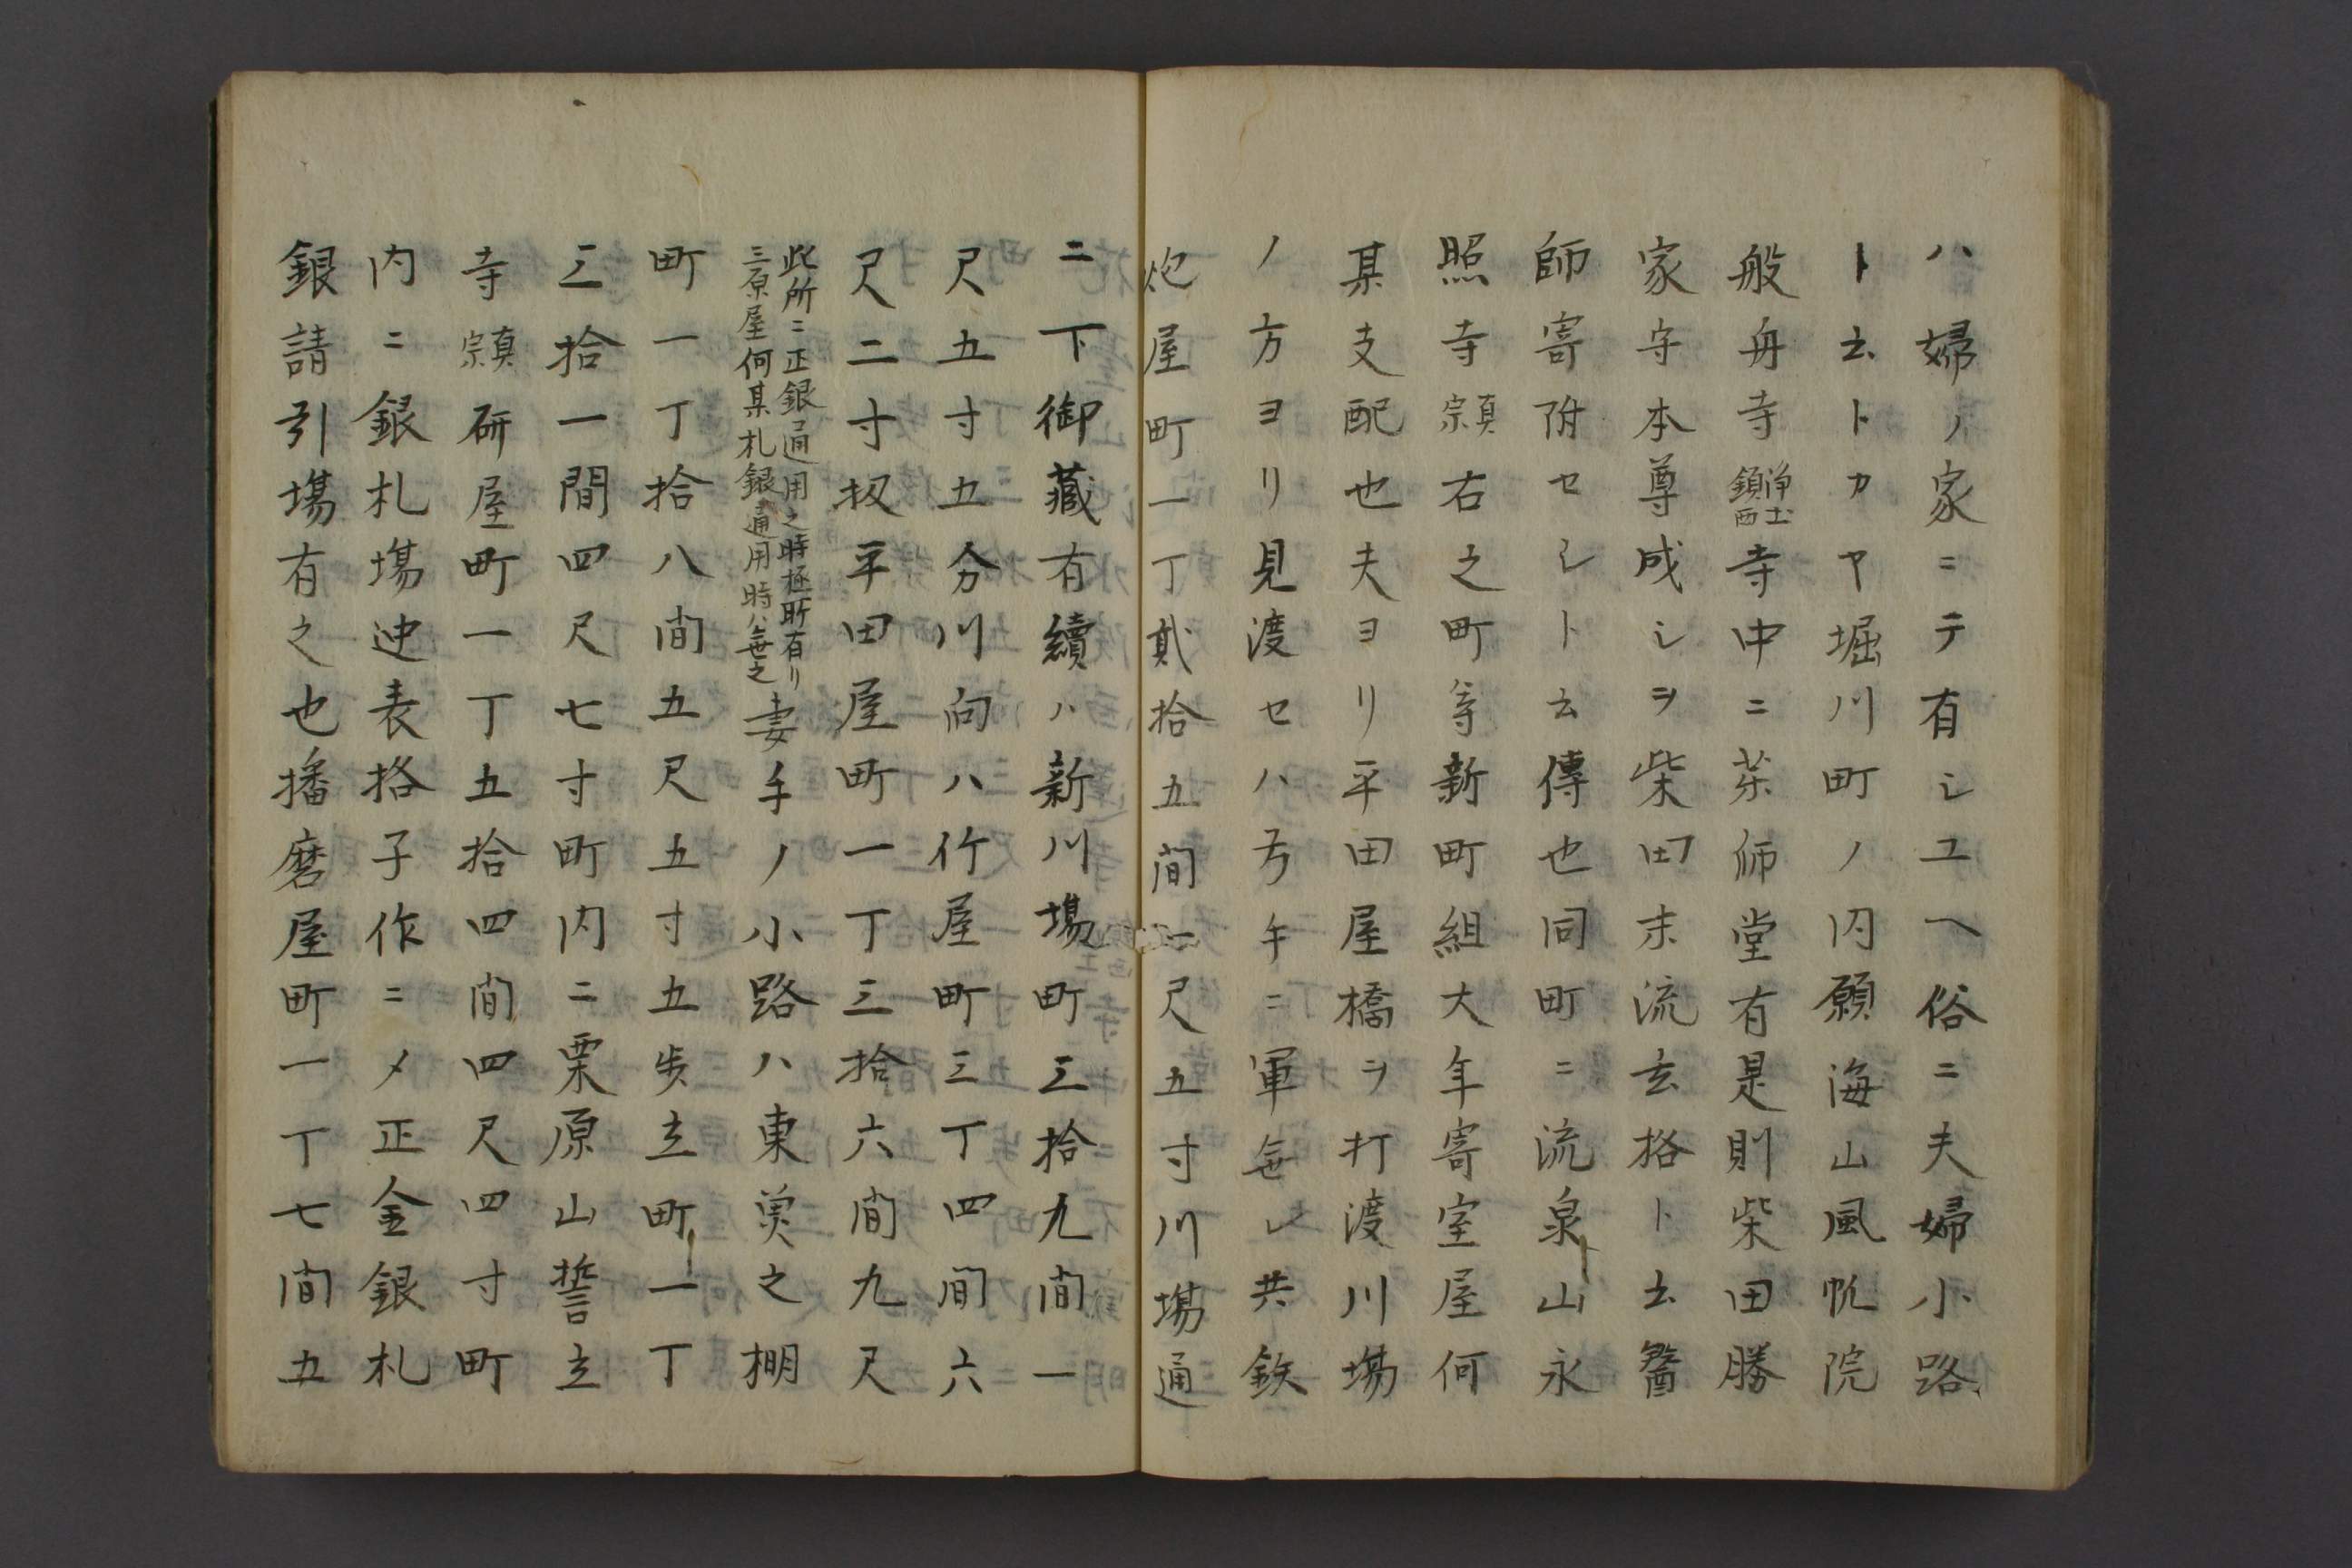 ハ婦ノ家ニテ有シユヘ俗ニ夫婦小路
ト云トカヤ堀川町ノ内願海山風帆院
般舟寺浄土鎮西寺中ニ薬師堂有是則柴田勝
家守本尊成シヲ柴田末流玄格ト云醫
師寄附セシト云傳也同町ニ流泉山永
照寺真宗右之町等新町組大年寄室屋何
某支配也夫ヨリ平田屋橋ヲ打渡川場
ノ方ヨリ見渡セハ方午ニ軍無レ共鉄
炮屋町一丁貮拾五間一尺五寸川場通
ニ下御藏有續ハ新川場町三拾九間一
尺五寸五分川向ハ竹屋町三丁四間六
尺二寸扨平田屋町一丁三拾六間九尺
此所ニ正銀通用之時極所有リ
三原屋何某札銀通用時ハ無之妻手ノ小路ハ東魚之棚
町一丁拾八間五尺五寸五歩立町一丁
三拾一間四尺七寸町内ニ栗原山誓立
寺真宗研屋町一丁五拾四間四尺四寸町
内ニ銀札場迚表格子作ニメ正金銀札
銀請引場有之也播磨屋町一丁七間五